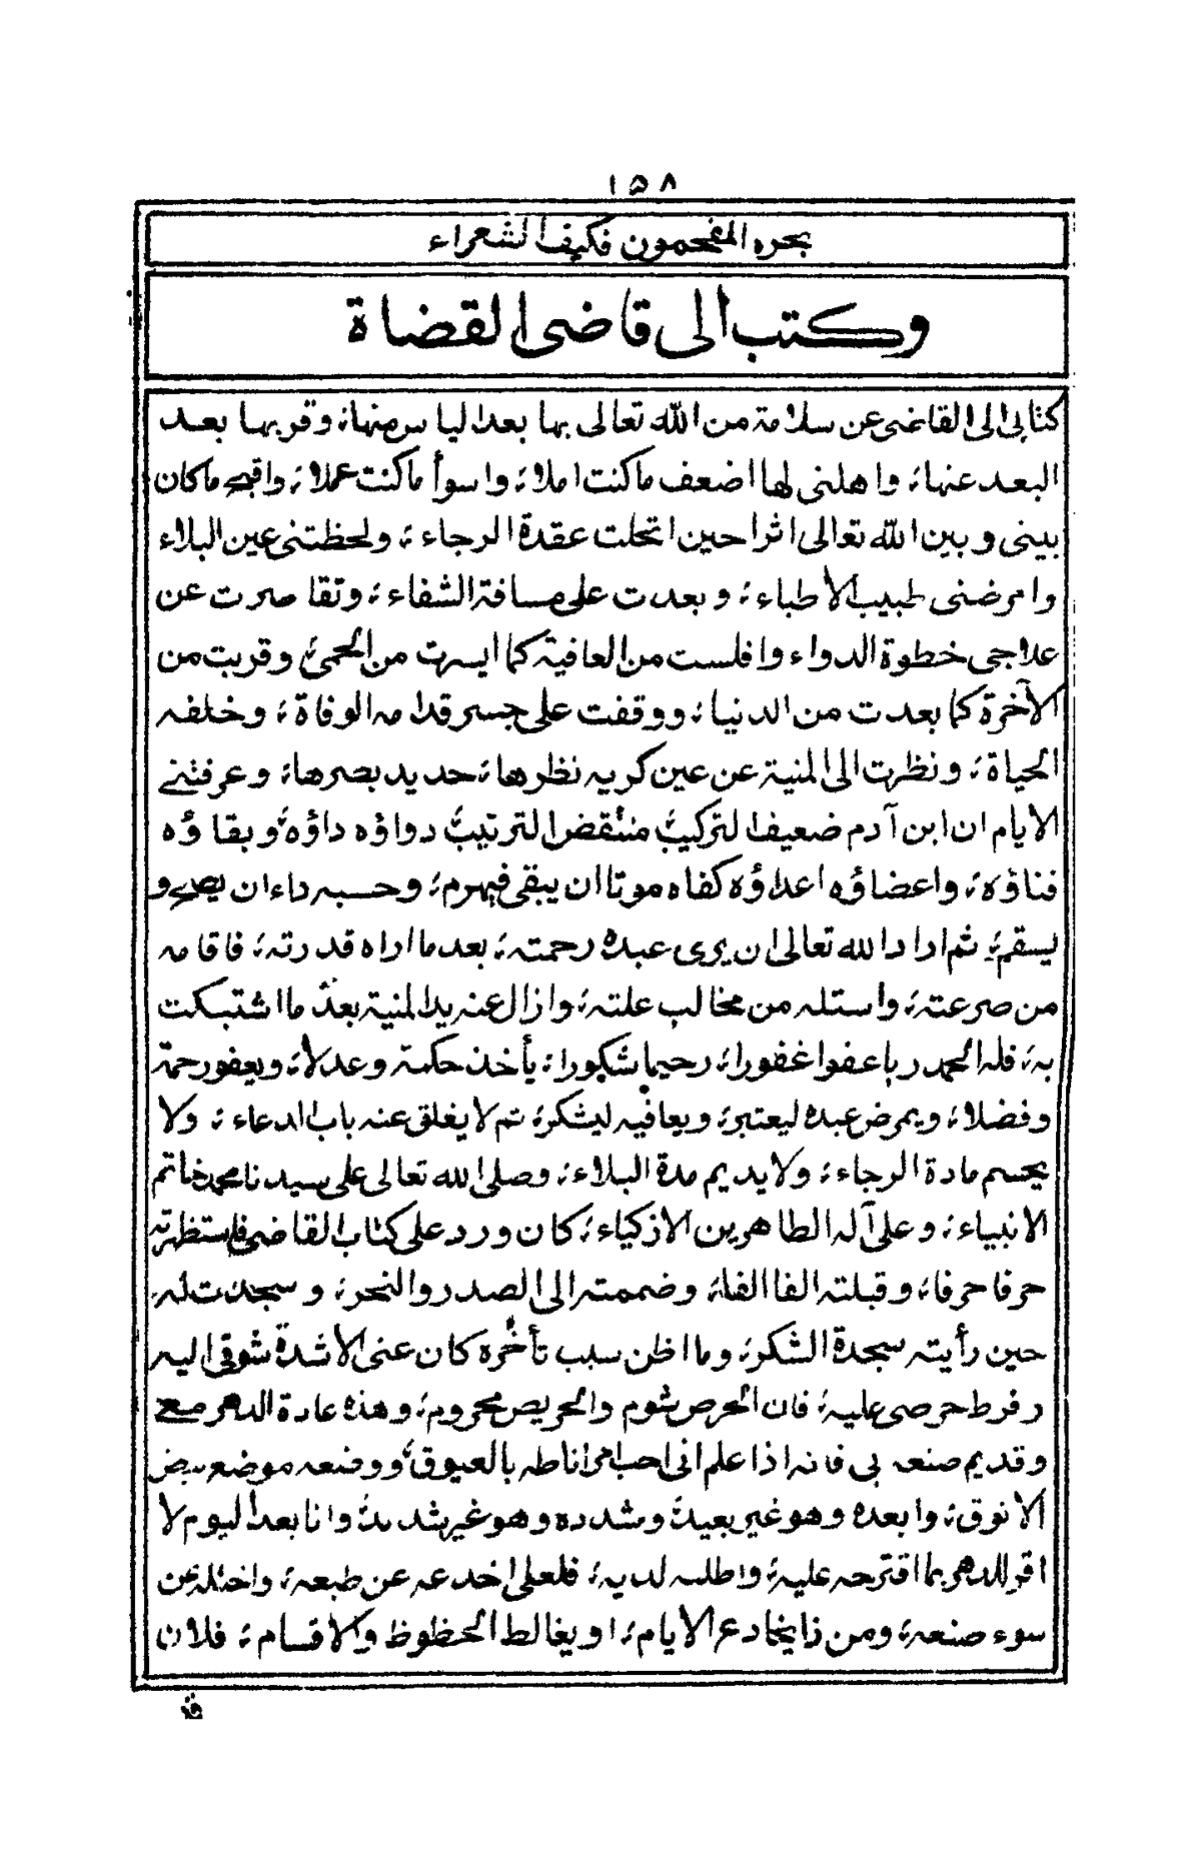 ١٥٨
بحره المفحمون فكيف الشعراء
وكتب الى قاضى القضاة
كتابى الى القاضى عن سلامة من الله تعالى بها بعد الياس منها، وقربها بعد
البعد عنها، واهلنى لها اضعف ما كنت املا، واسوأ ما كنت عملا، واقبح ما كان
بينى وبين الله تعالى اثرا حين انحلت عقدة الرجاء، ولحظتنى عين البلاء
وامرضنى طبيب الأطباء، وبعدت على مسافة الشفاء، وتقاصرت عن
علاجى خطوة الدواء وافلست من العافية كما ايسرت من الحمى، وقربت من
الآخرة كما بعدت من الدنيا، ووقفت على جسر قدامه الوفاة، وخلفه
الحياة، ونظرت الى المنية عن عين كريه نظرها، حديد بصرها، وعرفتنى
الايام ان ابن آدم ضعيف التركيب، منتقض الترتيب، دواؤه داؤه، وبقاؤه
فناؤه، واعضاؤه اعداؤه كفاه موتا ان يبقى فيهرم، وحسبه داء ان يصح و
يسقم، ثم اراد الله تعالى ان يرى عبده رحمته، بعد ما اراه قدرته، فاقامه
من صرعته، واستله من مخالب علته، وازال عنه يد المنية بعد ما اشتبكت
به، فلله الحمد ربا عفوا غفورا، رحيما شكورا، يأخذ حكمة وعدلا، ويعفو رحمة
وفضلا، ويمرض عبده ليعتبر، ويعافيه ليشكر، ثم لا يغلق عنه باب الدعاء، ولا
يحسم مادة الرجاء، ولا يديم مدة البلاء، وصلى الله تعالى على سيدنا محمد خاتم
الانبياء، وعلى آله الطاهرين الازكياء، كان ورد على كتاب القاضى فاستظهرته
حرفا حرفا، وقبلته الفا الفا، وضممته الى الصدر والنحر، وسجدت له
حين رأيته سجدة الشكر، وما اظن سبب تأخره كان عنى الا شدة شوقى اليه
وفرط حرصى عليه، فان الحرص شوم والحريص محروم، وهذه عادة الدهر معى
وقديم صنعه بى فانه اذا علم انى احب امرا ناطه بالعيوق، ووضعه موضع بيض
الانوق، وابعده وهو غير بعيد، وشدده وهو غير شديد، وانا بعد اليوم لا
اقر للدهر بما اقترحه عليه، واطلبه لديه، فلعلى اخدعه عن طبعه، واختله عن
سوء صنعه، ومن ذا يخادع الايام، او يغالط الحظوظ والاقسام، فلان